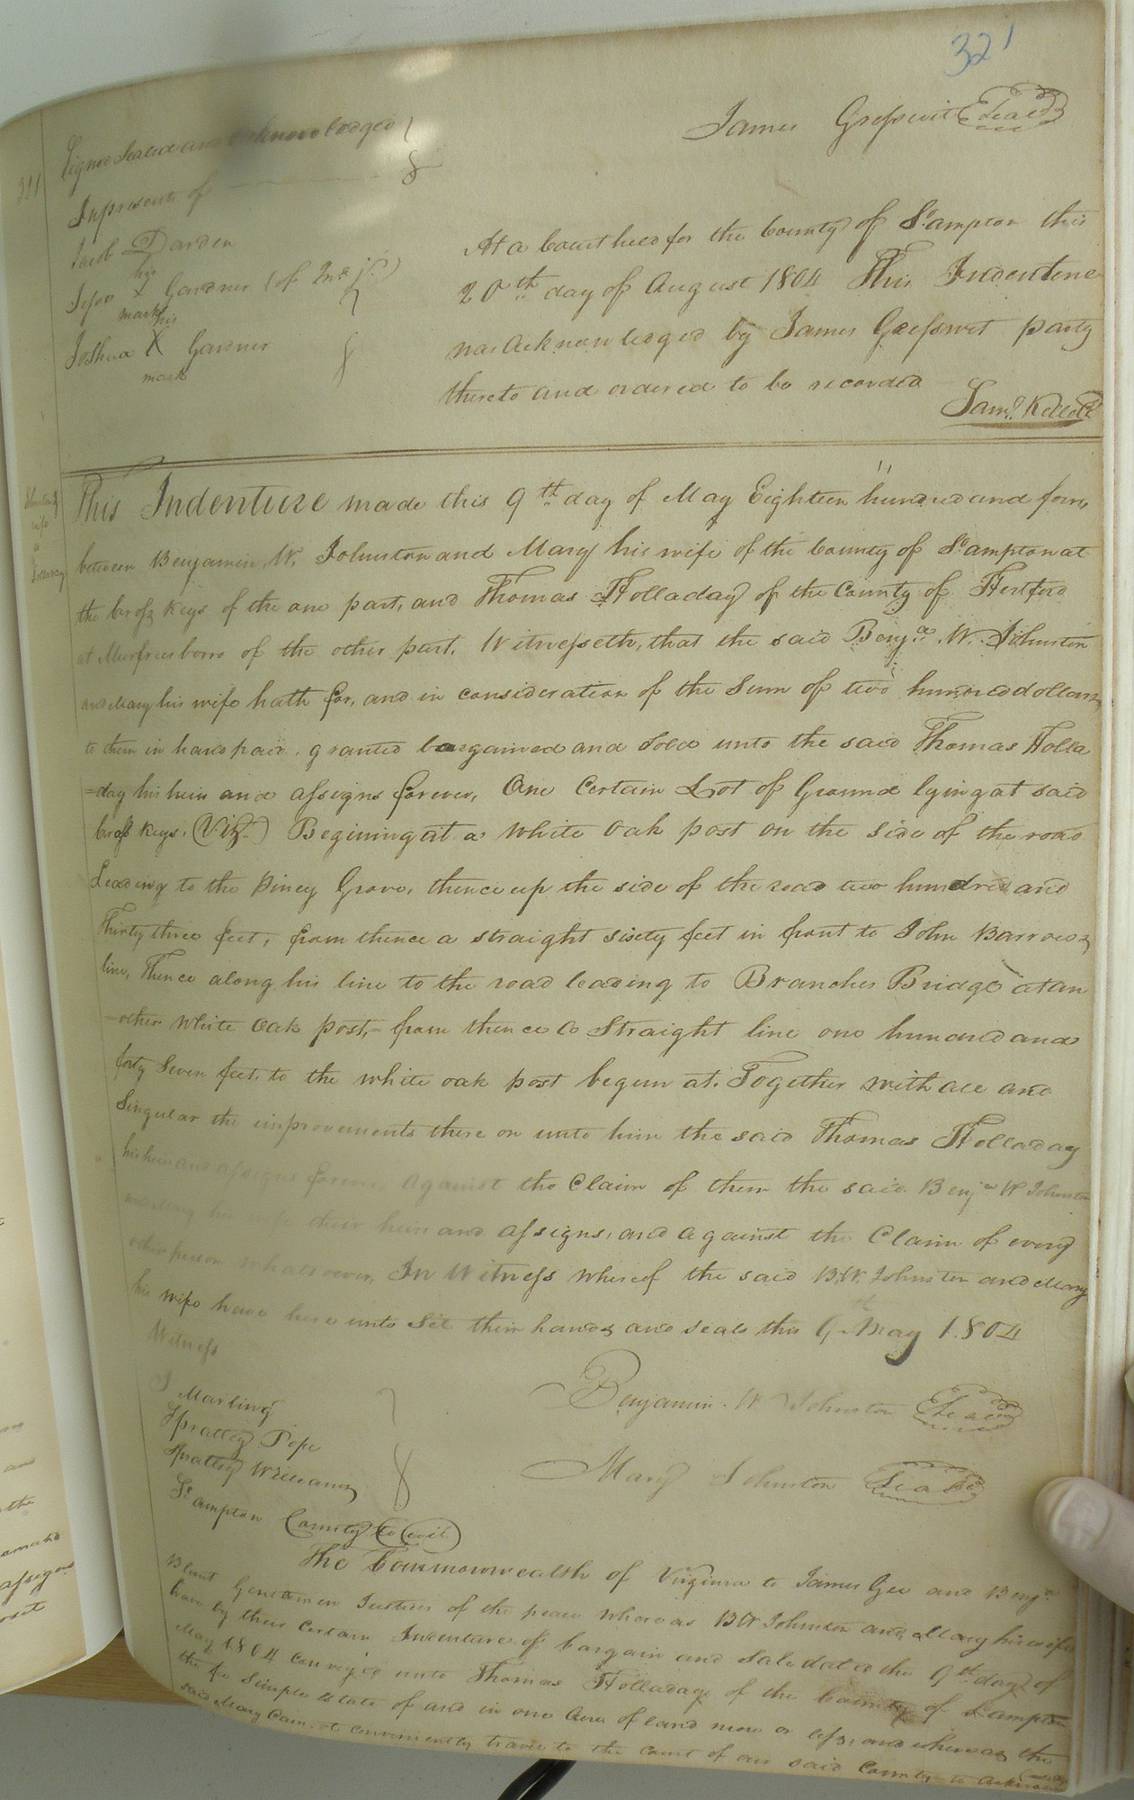 321
James Gresswit Seal
Signed Sealed and acknowledged
In presence of
Jacob Darden
his
Jesse X Gardner (of Jnº jr.)
mark
his
Joshua X Gardner
mark
At a Court held for the County of Sºampton this
20th day of August 1804 This Indenture
was acknowledged by James Gresswit party
thereto and ordered to be recorded
Saml. Kello Ct
This Indenture made this 9th day of May Eighteen hundred and four,
between Benjamin W. Johnston and Mary his wife of the County of Sºampton at
the Cross Keys of the one part, and Thomas Holladay of the County of Hertford
at Murfreesboro of the other part. Witnesseth, that the said Benjª. W. Johnston
and Mary his wife hath for, and in consideration of the Sum of two hundred dollars
to them in hand paid, granted bargained and sold unto the said Thomas Holla
=day his heirs and assigns forever, One Certain Lot of Ground lying at said
Cross Keys, (Vizt.) Begining at a White Oak post on the side of the road
Leading to the Piney Grove, thence up the side of the road two hundred and
Thirty three feet, from thence a straight sixty feet in front to John Barrows
line, Thence along his line to the road leading to Branches Bridge at an
-other White Oak post,- from thence a Straight line one hundred and
forty Seven feet, to the white oak post begun at. Together with all and
Singular the improvements there on unto him the said Thomas Holladay
his heirs and assigns forever, against the Claim of them the said Benjª W Johnston
and Mary his wife their heirs and assigns, and against the Claim of every
other person whatsoever, In Witness whereof the said B.W. Johnston and Mary
his wife have here unto Set their hands and seals this 9th May 1804
Witness
J Marling
Spratley Pope
Spratley Williams
Benjamin. W Johnston Seal
Mary Johnston Seal
Sºampton County to (wit)
The Commonwealth of Virginia to James Gee and Benjª
Blunt Gentlemen Justices of the peace whereas B W Johnston and Mary his wife
have by their Certain Indenture of bargain and Sale dated the 9th day of
May 1804 conveyed unto Thomas Holladay of the County of Sºampton
the fee Simple Estate of and in one Acre of land more or less, and whereas the
said Mary Cannot conveniently travel to the Court of our said County to acknow